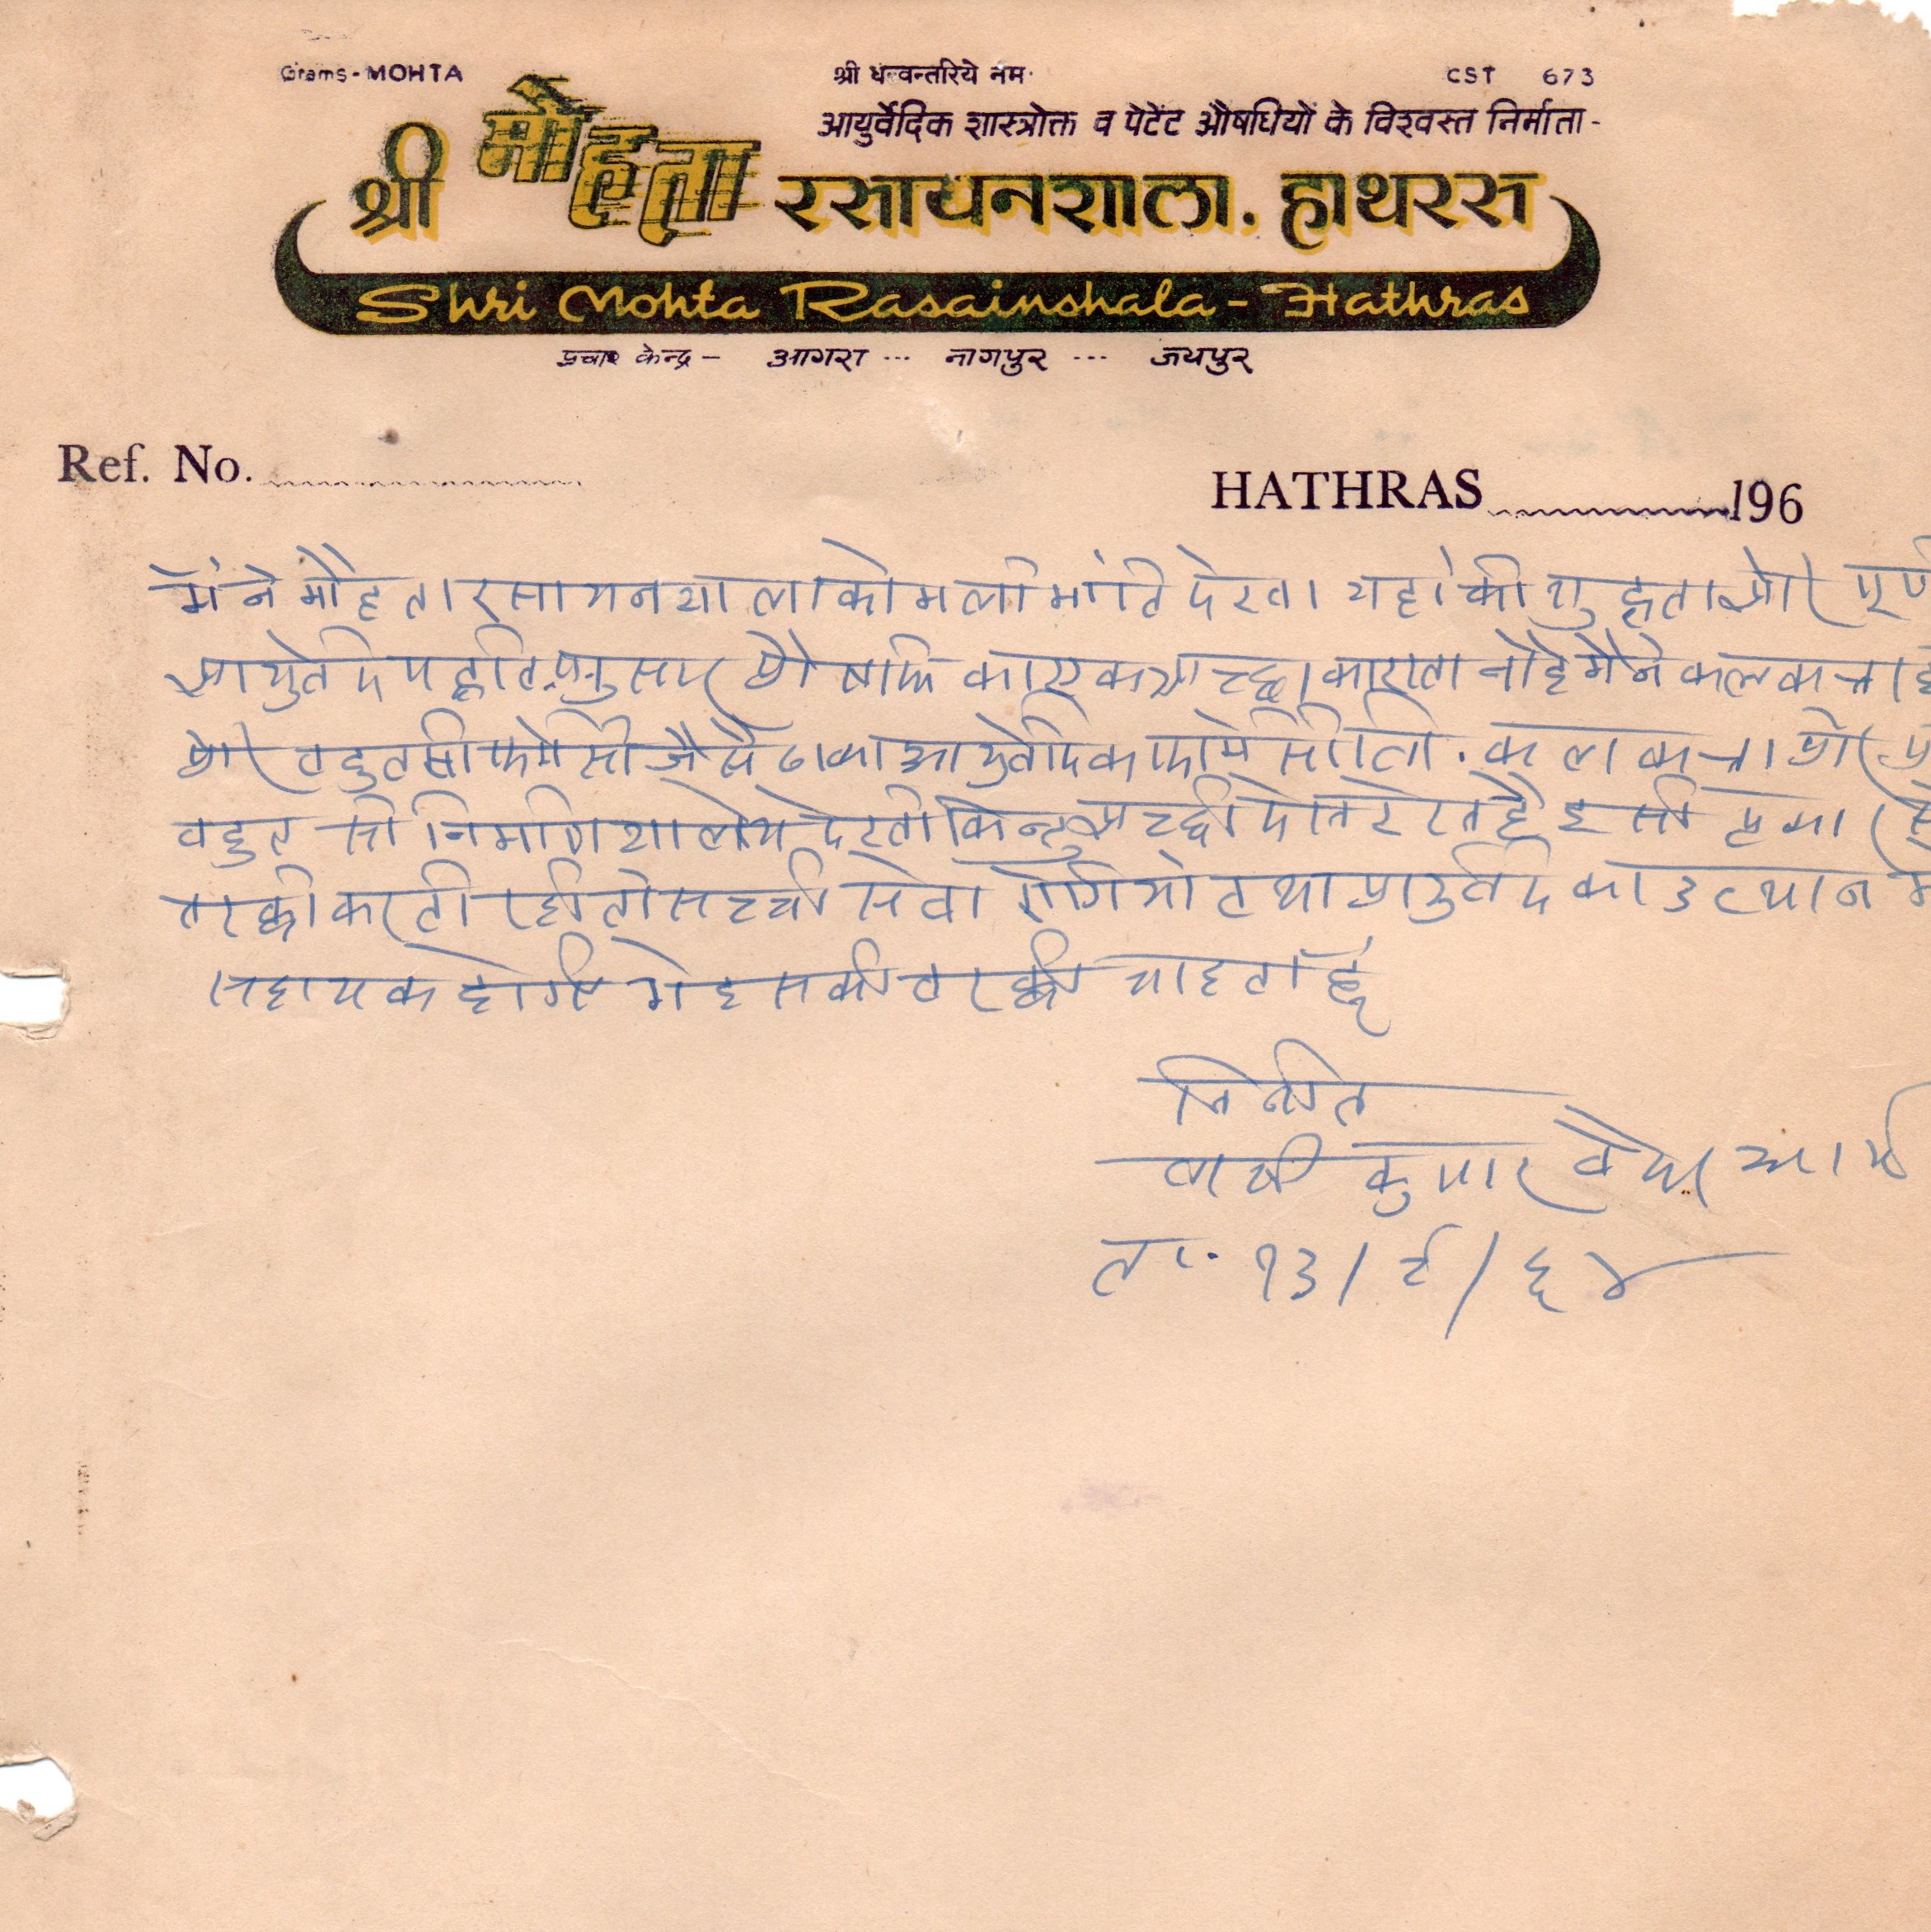 Grams-MOHTA
श्री धन्वन्तरिये नम.
CST 673
आयुर्वेदिक शास्त्रोक्त व पेटेंट औषधियों के विश्वस्त निर्माता-
श्री मोहता रसायनशाला. हाथरस
Shri Mohta Rasainshala - Hathras
प्रचार केन्द्र - आगरा ... नागपुर ... जयपुर
Ref. No.
HATHRAS 196
मैंने मौहता रसायनशाला को भली भांति देखा यहां की शुद्धता और
आयुर्वेद पद्धति अनुसार औषधि का एक अच्छा कारखाना है मैने कलकत्ता
और बहुत सी फार्मेसी जैसे ढाका आयुर्वेदिक फार्मेसी लि. कलकत्ता और
बहुत सी निर्माणशालाये देखी किन्तु इसी प्रकार
तरक्की करती रही तो सच्ची सेवा रोगियो तथा आयुर्वेद का उत्थान
सहायक होगी मै इसकी तरक्की चाहता हूँ
विनीत
कुमार वैद्य
ता. १३/ ६४